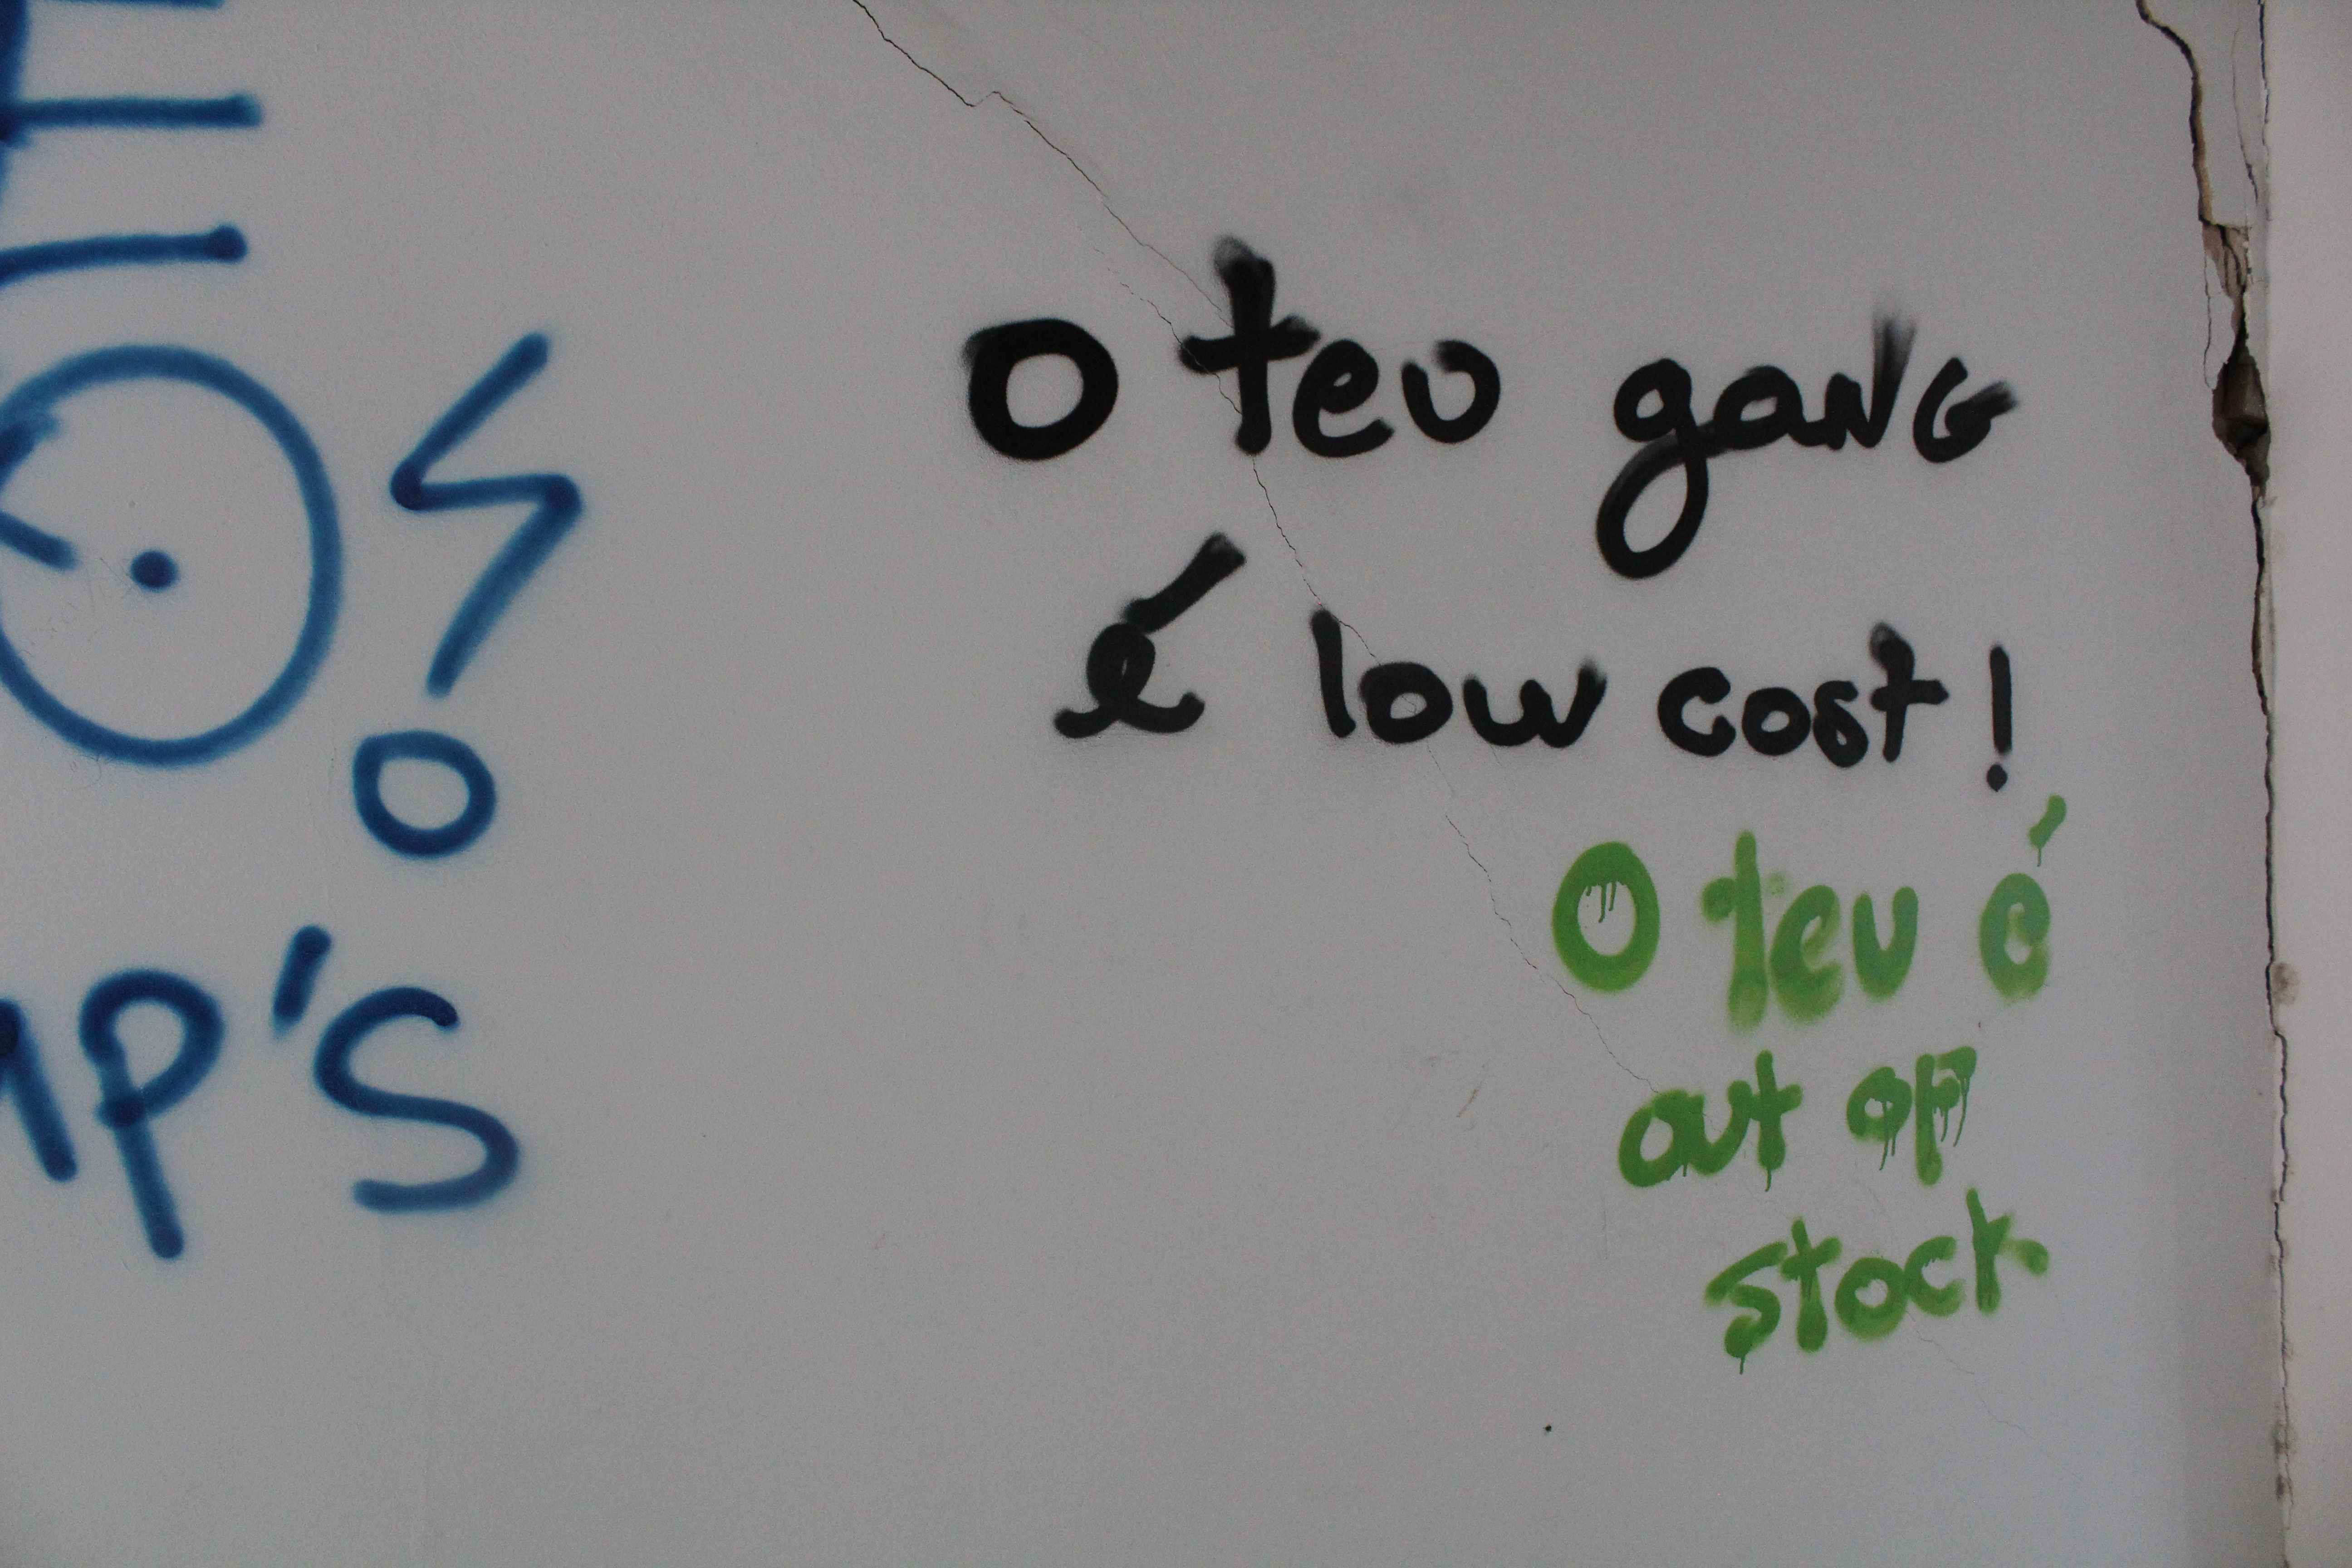 O teu gang
é low cost!
O teu é
out of
stock
P'S